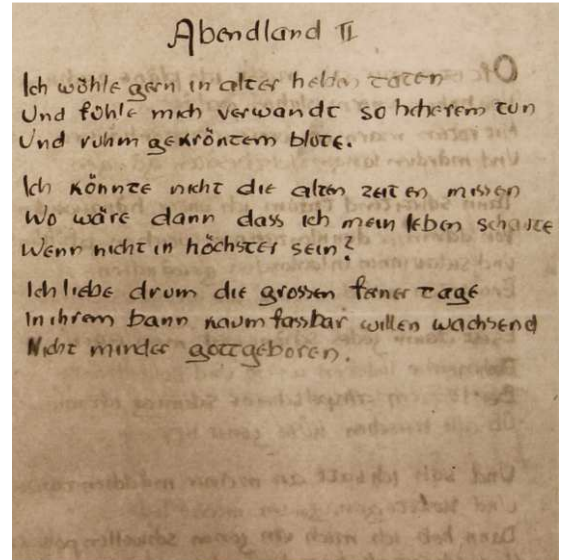 Abendland II
Ich wühle gern in alter helden taten
Und fühle mich verwandt so hehrem tun
Und ruhm gekröntem blute.
Ich könnte nicht die alten zeiten missen
Wo wäre dann dass ich mein leben schaute
Wenn nicht in höchster sein?
Ich liebe drum die grossen ferner tage
In ihrem bann kaum fassbar willen wachsend
Nicht minder gottgeboren.